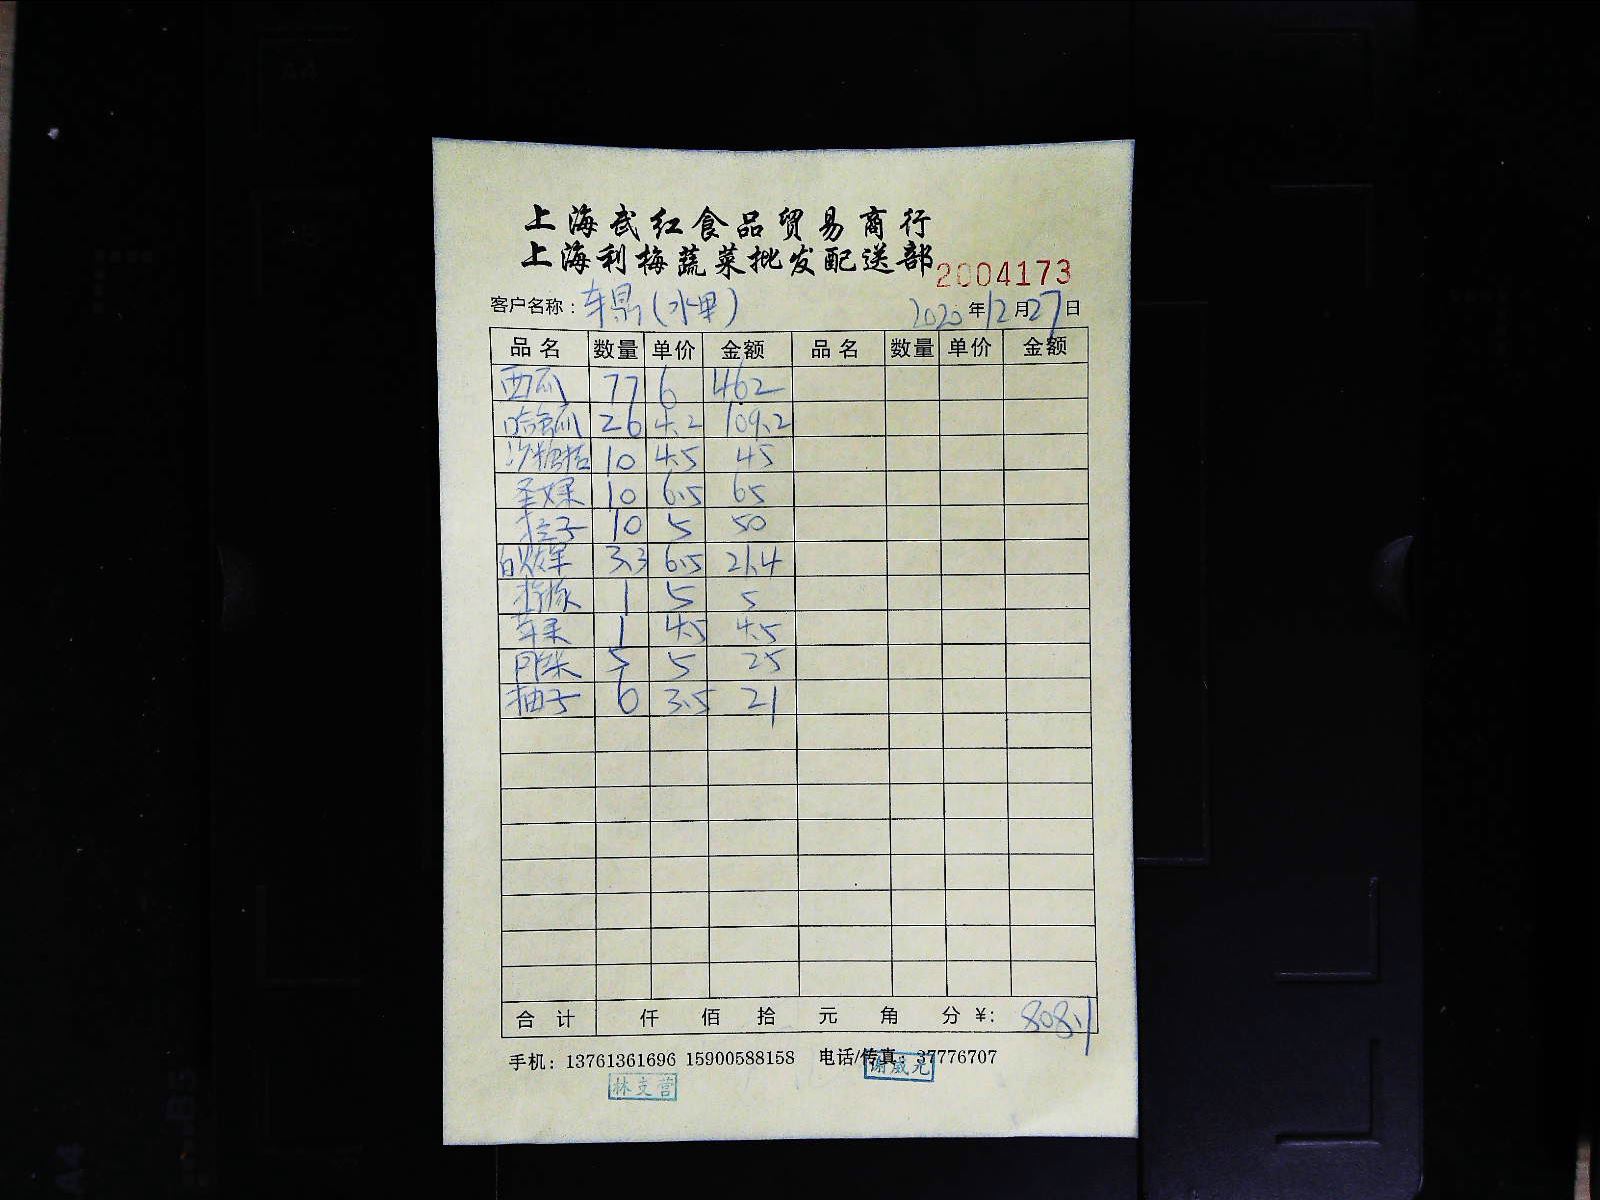 上海武红食品贸易商行
上海利梅蔬菜批发配送部
2004173
客户名称：车景(水果) 2020年12月27日
品名 数量 单价 金额 品名 数量 单价 金额
西瓜 77 6 462
哈密瓜 26 4.2 109.2
沙糖桔 10 4.5 45
圣女果 10 6.5 65
10 5 50
白火龙果 3.3 6.5 21.4
1 5 5
苹果 1 4.5 4.5
5 5 25
柚子 6 3.5 21
合计 仟 佰 拾 元 角 分 ¥: 808.1
手机：13761361696 15900588158 电话/传真：37776707
林支营
谢威光